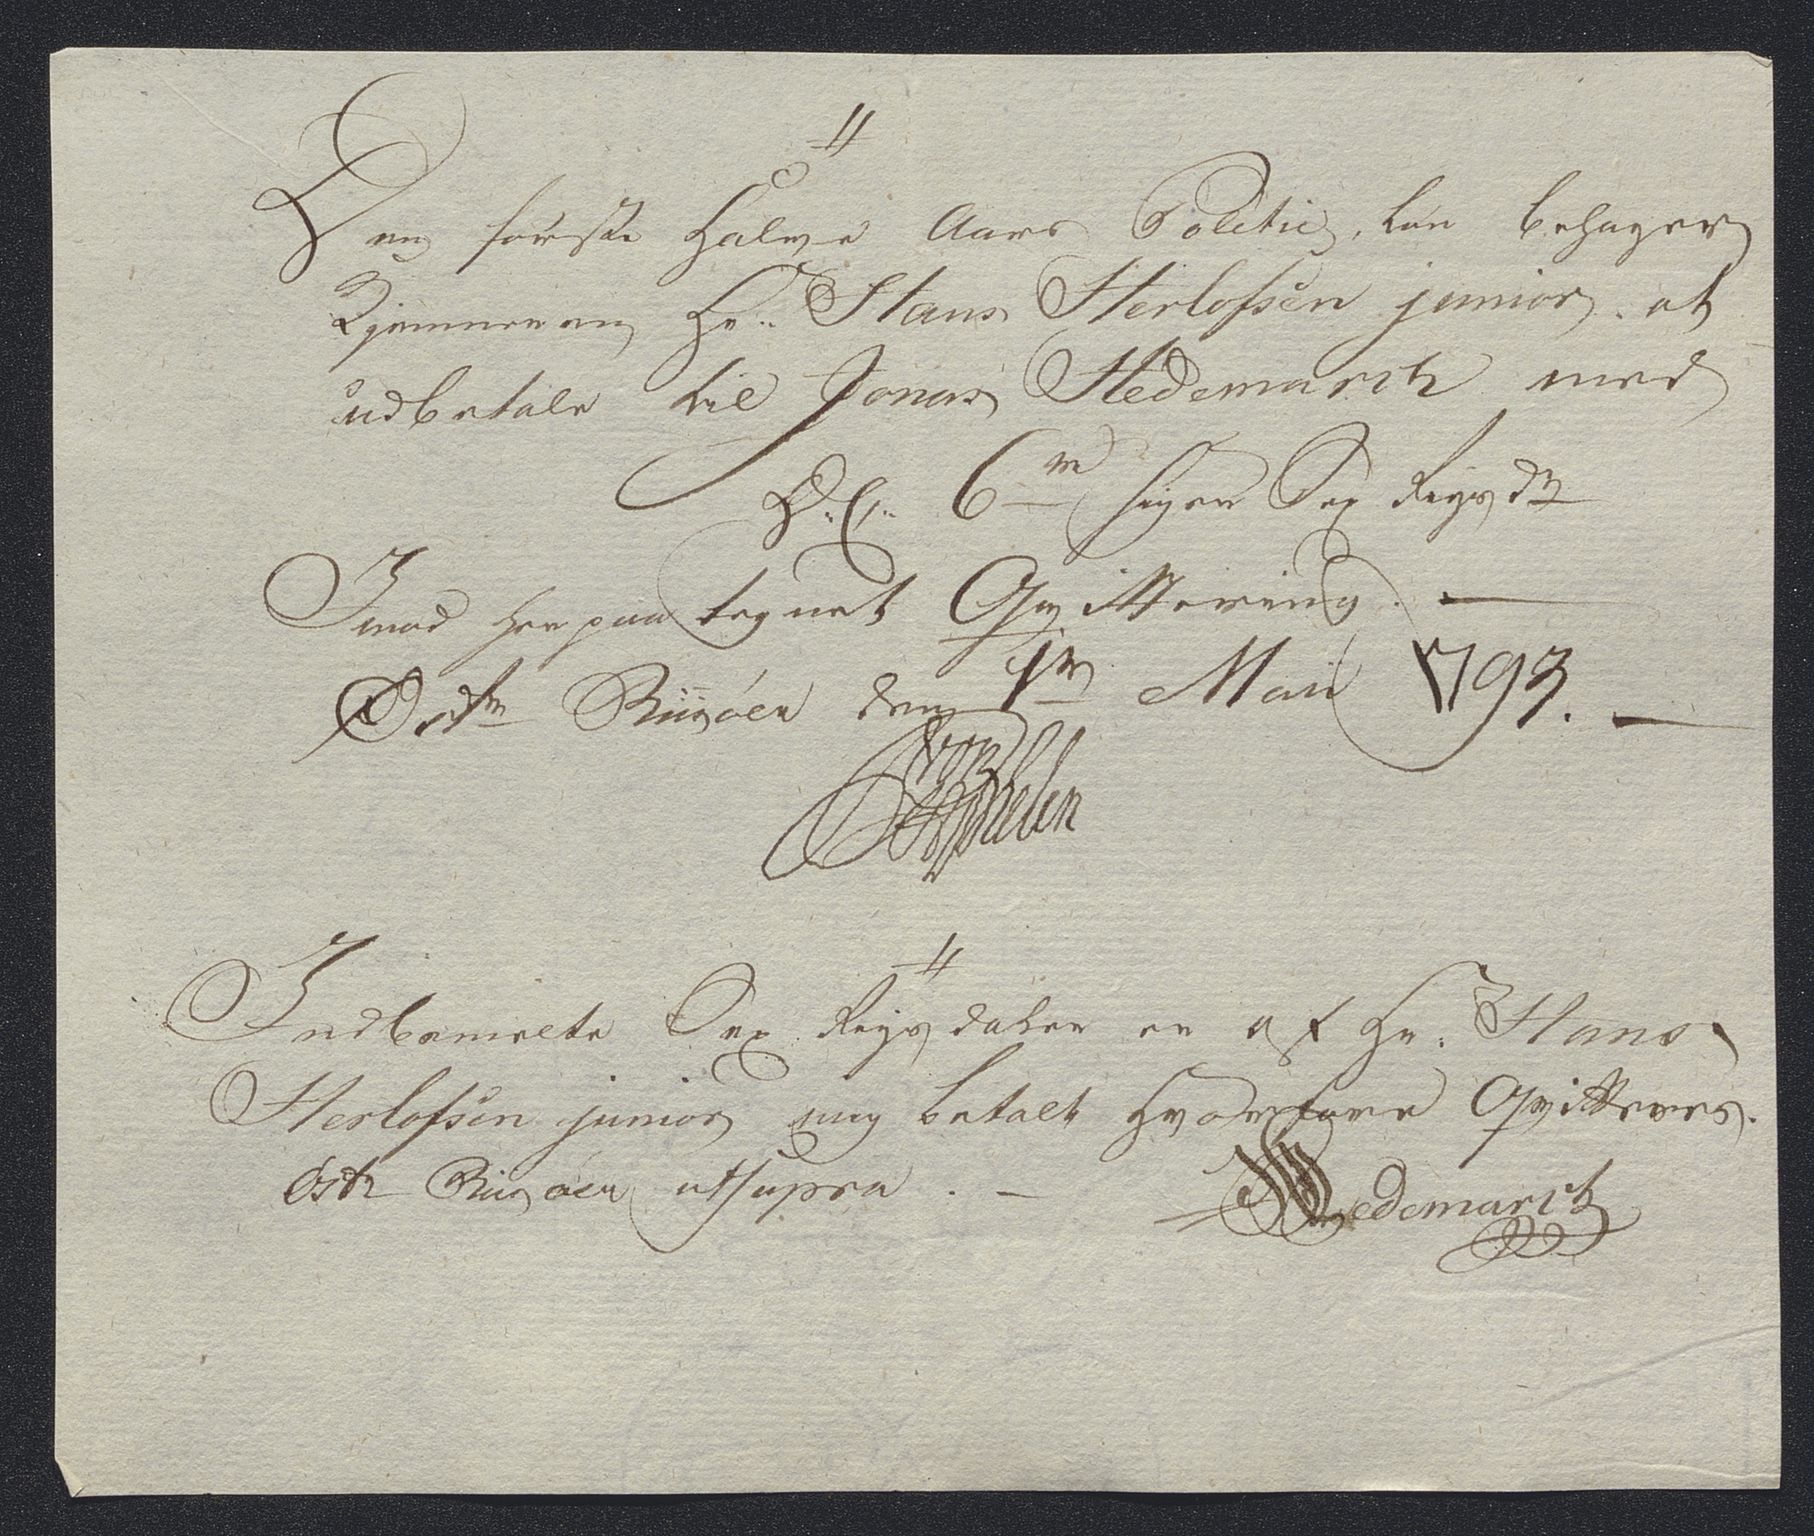 Den første Halve Aars Politie, Løn behager
Kjemneren Hr: Hans Herlofsen junior, at
udbetale til Jonas Hedemarck med
6 rd siger Sex Rigsdr
Imod herpaa tegnet Qvittering. —
Østr Riisøer den 1te Maii 1793. —
von
Indbemelte Sex Rigsdaler er af Hr: Hans
Herlofsen junior mig betalt hvorfore Qvitteres.
Østr Riisøer utsupra. —
Hedemarck